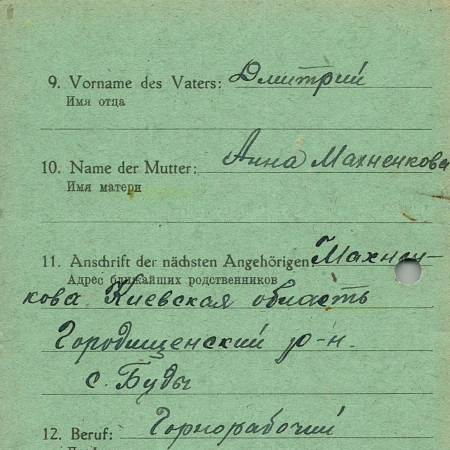 9. Vorname des Vaters: Дмитрий
Имя отца
10. Name der Mutter: Анна Махненкова
Имя матери
11. Anschrift der nächsten Angehörigen: Махнен-
Адрес ближайших родственников
кова Киевская область
Городищенский р-н.
с. Буды
12. Beruf: Горнорабочий